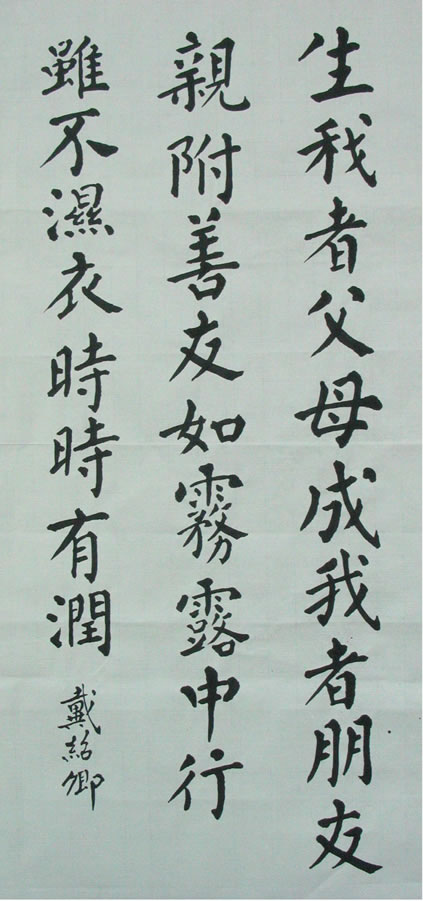 生我者父母成我者朋友
親附善友如霧露中行
雖不濕衣時時有潤
戴紹卿